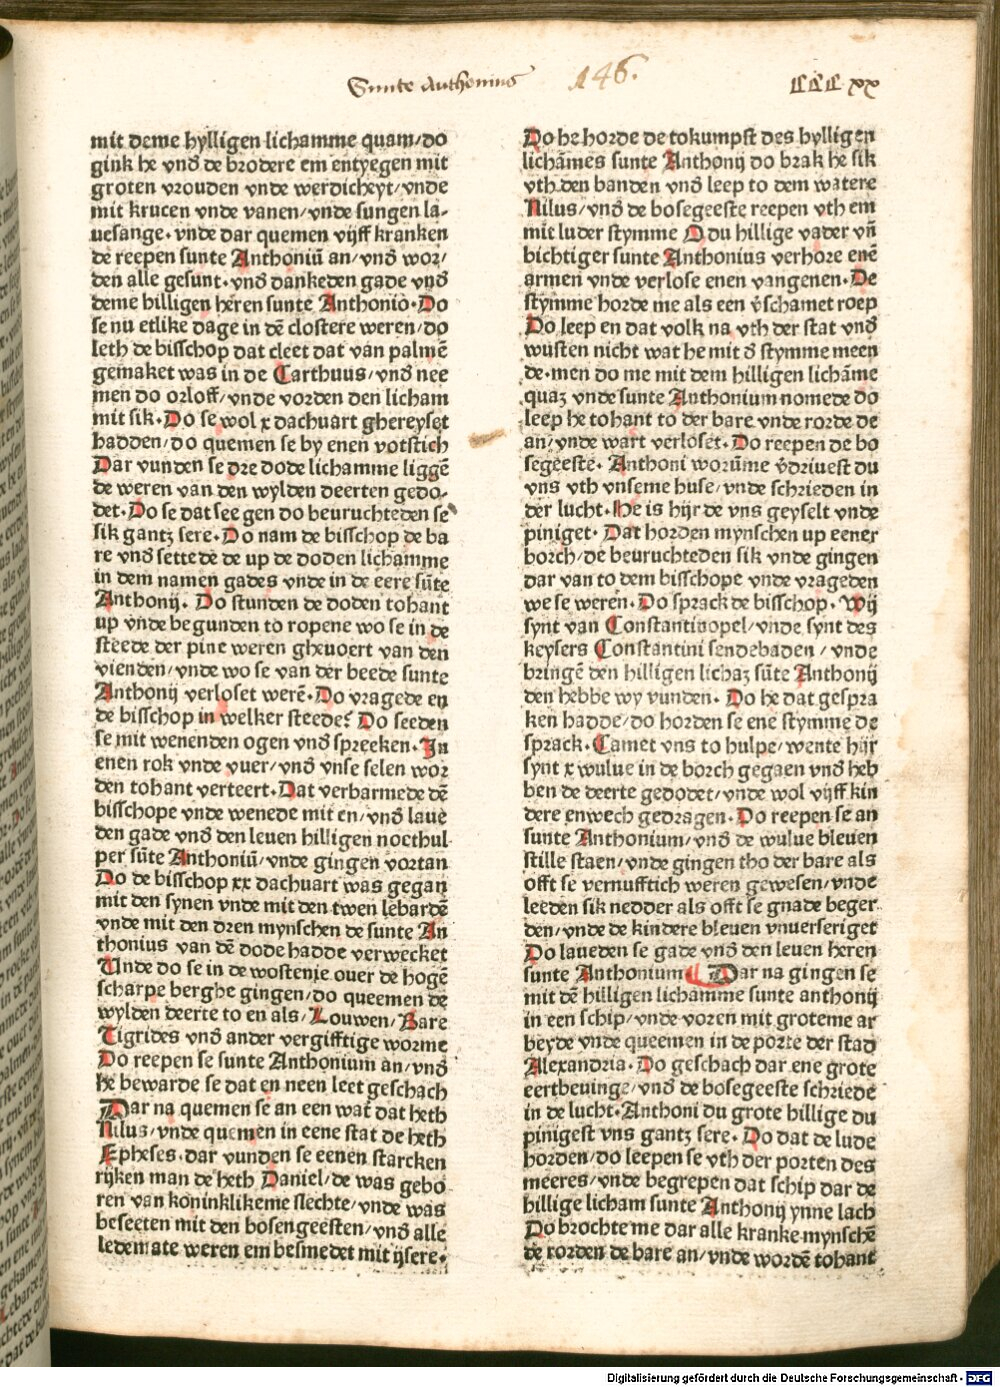 Sunte Anthonius
146.
CCC xx
mit deme hylligen lichamme quam/do
gink he vnd de brodere em entyegen mit
groten vrouden vnde werdicheyt/vnde
mit krucen vnde vanen/vnde sungen la-
uesange. vnde dar quemen vijff kranken
de reepen sunte Anthoniū an/vnd wor/
den alle gesunt. vnd dankeden gade vnd
deme hilligen heren sunte Anthonio. Do
se nu etlike dage in dē clostere weren/do
leth de bisschop dat cleet dat van palmē
gemaket was in de Carthuus/vnd nee
men do orloff/vnde vorden den licham
mit sik. Do se wol x dachuart ghereyset
hadden/do quemen se by enen votstich
Dar vunden se dre dode lichamme liggē
de weren van den wylden deerten gedo-
det. Do se dat see gen do beuruchteden se
sik gantz sere. Do nam de bisschop de ba
re vnd settede de up de doden lichamme
in dem namen gades vnde in de eere sūte
Anthonij. Do stunden de doden tohant
up vnde begunden to ropene wo se in de
steede der pine weren gheuoert van den
vienden/vnde wo se van der beede sunte
Anthonij verloset werē. Do vragede en
de bisschop in welker steede? Do seeden
se mit wenenden ogen vnd spreeken. In
enen rok vnde vuer/vnd vnse selen wor
den tohant verteert. Dat verbarmede dē
bisschope vnde wenede mit en/vnd laue
den gade vnd den leuen hilligen nocthul-
per sūte Anthoniū/vnde gingen vortan
Do de bisschop xx dachuart was gegan
mit den synen vnde mit den twen lebardē
vnde mit den dren mynschen de sunte An
thonius van dē dode hadde verwecket
Vnde do se in de wostenie ouer de hogē
scharpe berghe gingen/do queemen de
wylden deerte to en als/Louwen/Bare
Tigrides vnd ander vergifftige worme
Do reepen se sunte Anthonium an/vnd
he bewarde se dat en neen leet geschach
Dar na quemen se an een wat dat heth
Nilus/vnde quemen in eene stat de heth
Epheses. dar vunden se eenen starcken
rijken man de heth Daniel/de was gebo
ren van koninklikeme slechte/vnde was
beseeten mit den bosengeesten/vnd alle
ledemate weren em besmedet mit ijsere.
Do he horde de tokumpst des hylligen
lichāmes sunte Anthonij do brak he sik
vth den banden vnd leep to dem watere
Nilus/vnd de bosegeeste reepen vth em
mit luder stymme O du hillige vader vn̄
bichtiger sunte Anthonius verhore enē
armen vnde verlose enen vangenen. De
stymme horde me als een v̄schamet roep
Do leep en dat volk na vth der stat vnd
wusten nicht wat he mit d stymme meen
de. men do me mit dem hilligen lichāme
quaz vnde sunte Anthonium nomede do
leep he tohant to der bare vnde rorde de
an/vnde wart verloset. Do reepen de bo
segeeste. Anthoni worūme v̄driuest du
vns vth vnseme huse/vnde schrieden in
der lucht. He is hijr de vns geyselt vnde
piniget. Dat horden mynschen up eener
borch/de beuruchteden sik vnde gingen
dar van to dem bisschope vnde vrageden
we se weren. Do sprack de bisschop. Wij
synt van Constantinopel/vnde synt des
keysers Constantini sendebaden/vnde
bringē den hilligen lichaz sūte Anthonij
den hebbe wy vunden. Do he dat gespra
ken hadde/do horden se ene stymme de
sprack. Camet vns to hulpe/wente hijr
synt x wulue in de borch gegaen vnd heb
ben de deerte gedodet/vnde wol vijff kin
dere enwech gedragen. Do reepen se an
sunte Anthonium/vnd de wulue bleuen
stille staen/vnde gingen tho der bare als
offt se vernufftich weren gewesen/vnde
leeden sik nedder als offt se gnade beger
den/vnde de kindere bleuen vnuerseriget
Do laueden se gade vnd den leuen heren
sunte Anthonium Dar na gingen se
mit dē hilligen lichamme sunte anthonij
in een schip/vnde voren mit groteme ar
beyde vnde queemen in de porte der stad
Alexandria. Do geschach dar ene grote
eertbeuinge/vnd de bosegeeste schriede
in de lucht. Anthoni du grote hillige du
pinigest vns gantz sere. Do dat de lude
horden/do leepen se vth der porten des
meeres/vnde begrepen dat schip dar de
hillige licham sunte Anthonij ynne lach
Do brochte me dar alle kranke mynschē
de rorden de bare an/vnde wordē tohant
Digitalisierung gefördert durch die Deutsche Forschungsgemeinschaft - DFG